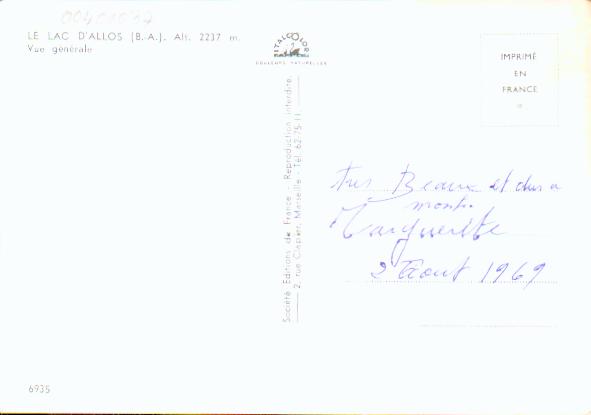 00401037
LE LAC D'ALLOS (B.A.). Alt. 2237 m.
Vue générale
ITALCOLOR
COULEURS NATURELLES
IMPRIMÉ
EN
FRANCE
Société Editions de France - Reproduction interdite.
2, rue Crapier, Marseille - Tél. 62-75-11.
Tres Beaux et dur a
monter
Marguerite
2 Aout 1969
6935